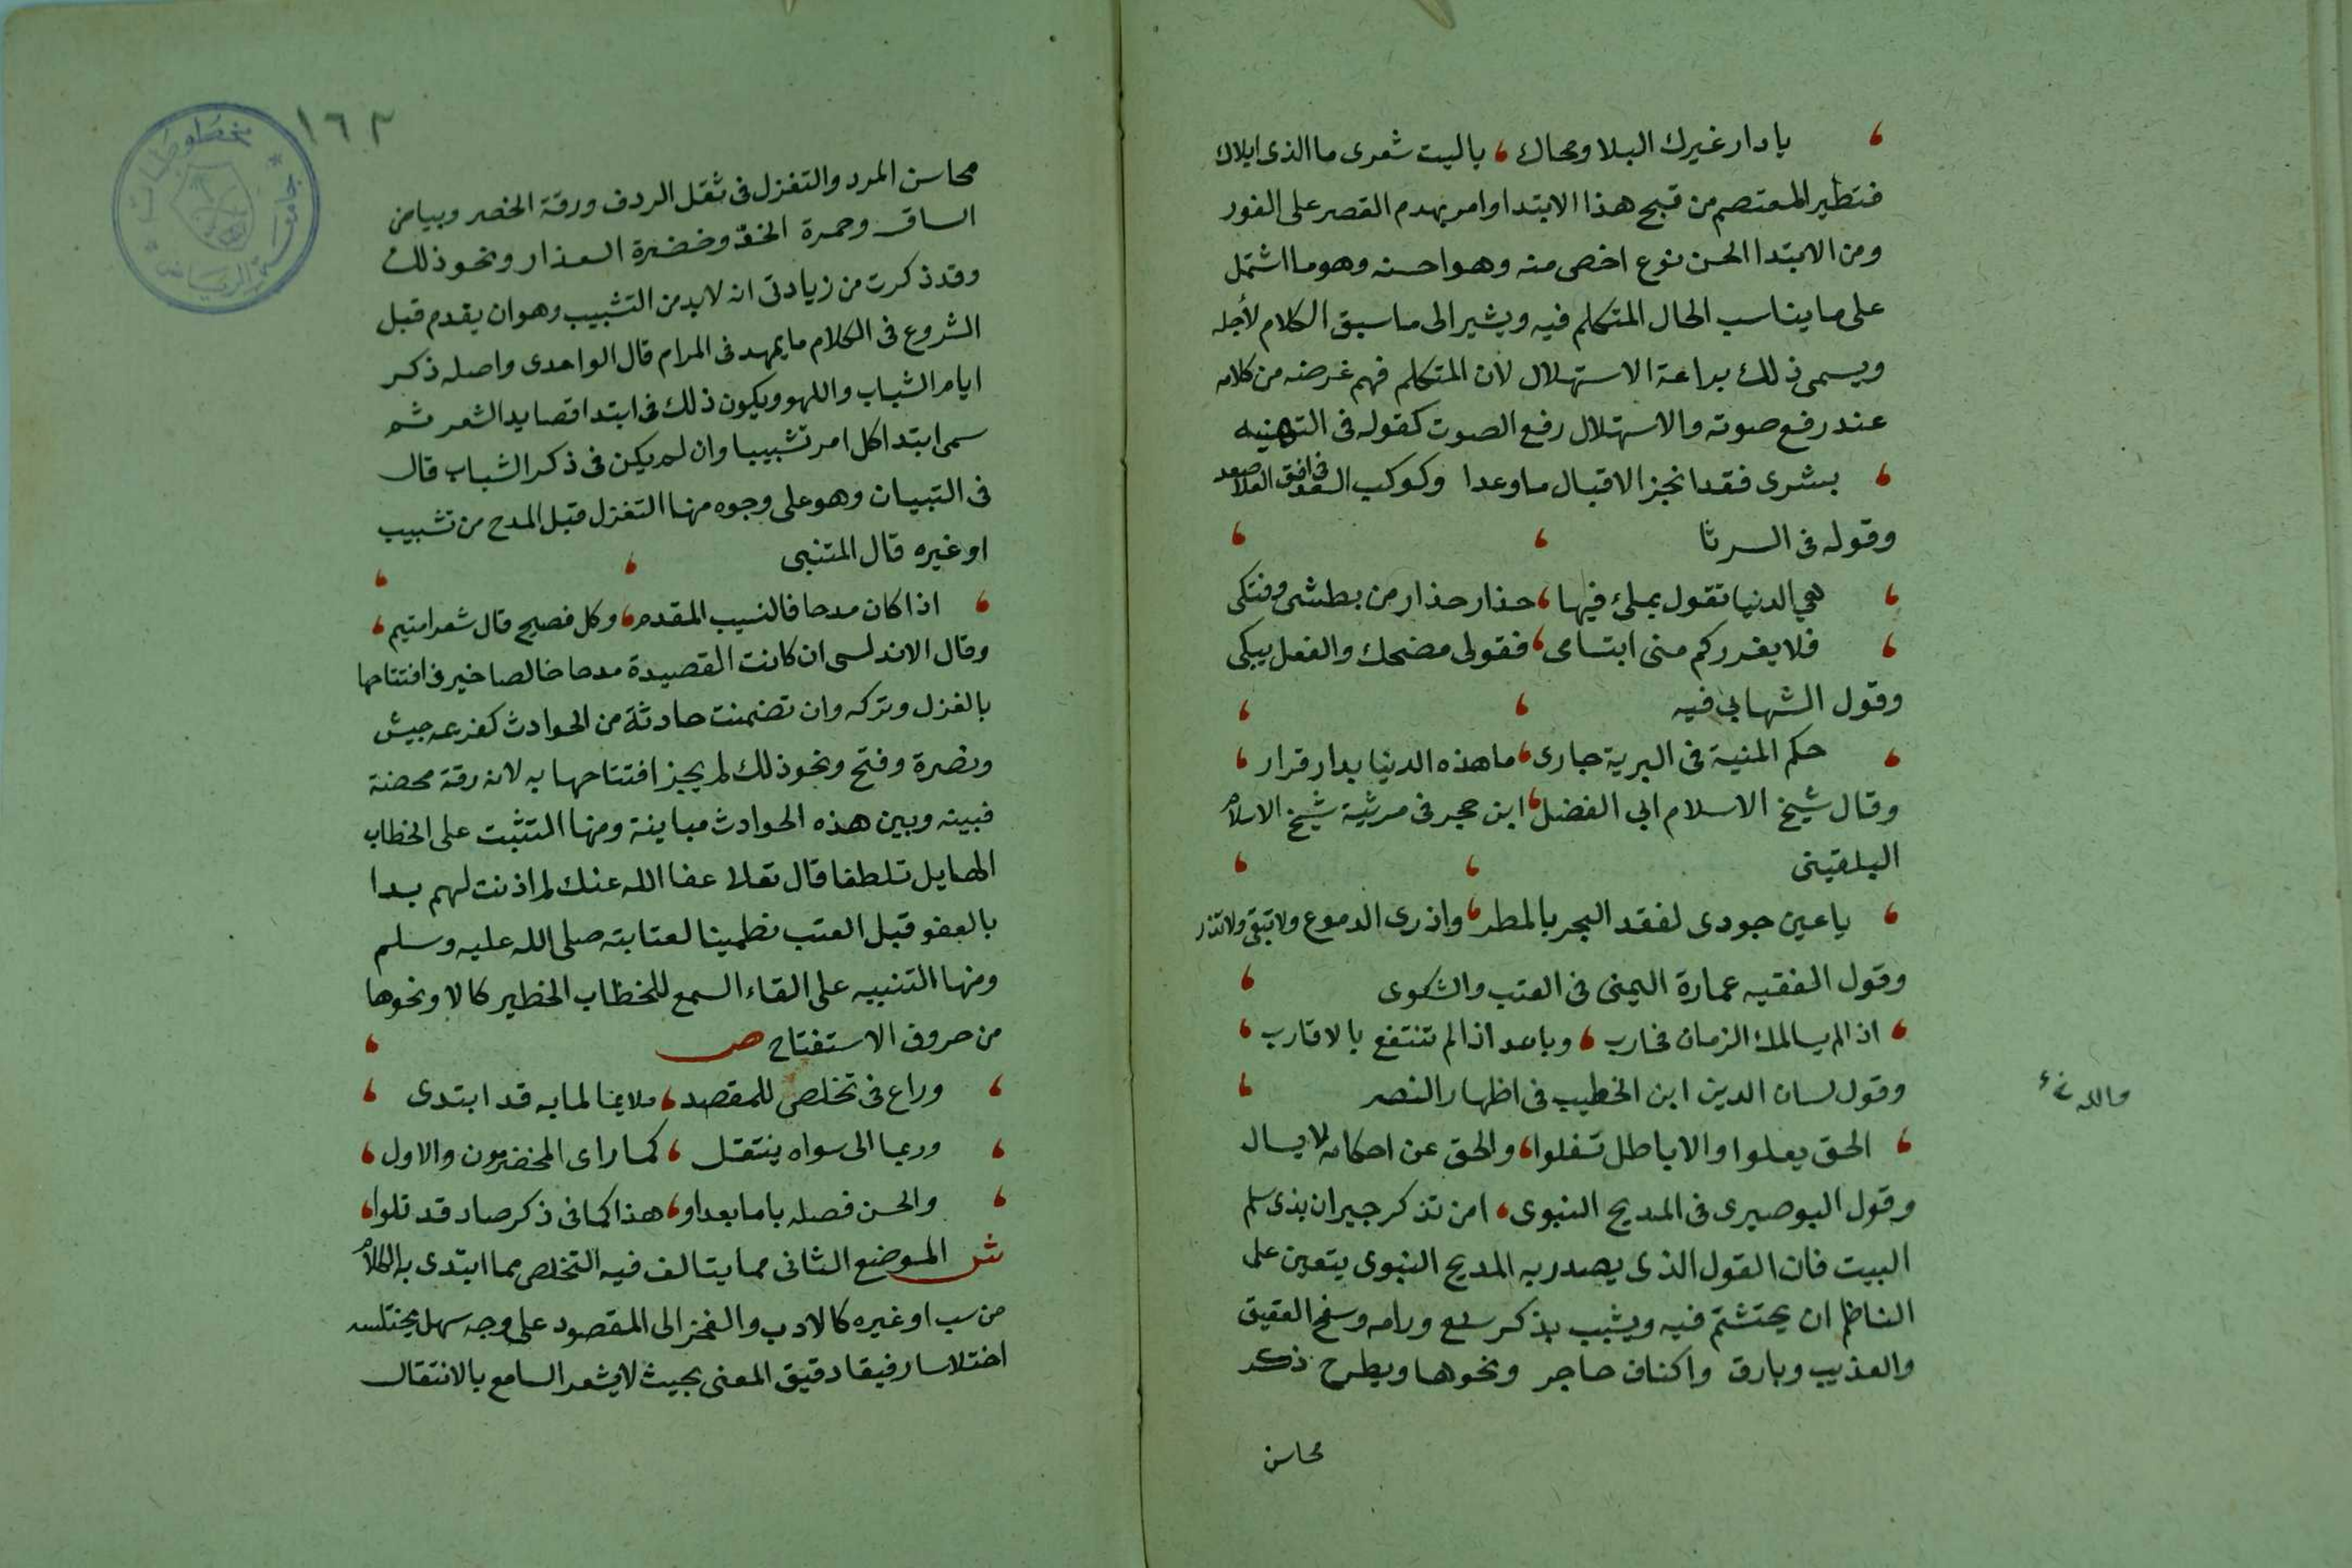 يا دار غيرك البلا ومحاك ، ياليت شعرى ما الذى ابلاك
فتطير المعتصم من قبح هذا الابتدا وامر بهدم القصر على الفور
ومن الابتدا الحسن نوع اخص منه وهو احسنه وهو ما اشتمل
على ما يناسب الحال المتكلم فيه ويشير الى ما سيق الكلام لأجله
ويسمى ذلك براعة الاستهلال لان المتكلم فهم غرضه من كلامه
عند رفع صوته والاستهلال رفع الصوت كقوله فى التهنيه
بشرى فقد انجز الاقبال ما وعدا وكوكب السعد فى افق العلا صعد
وقوله فى الرثا
هي الدنيا تقول بملئ فيها ، حذار حذار من بطشى وفتكى
فلا يغرركم منى ابتساى ، فقولى مضحك والفعل يبكى
وقول الشهابى فيه
حكم المنية فى البرية جارى ، ما هذه الدنيا بدار قرار
وقال شيخ الاسلام ابى الفضل ، ابن حجر فى مرثية شيخ الاسلام
البلقينى
ياعين جودى لفقد البحر بالمطر ، واذرى الدموع ولا تبقى ولا تذر
وقول الفقيه عمارة اليمنى فى العتب والشكوى
اذا لم يسالمك الزمان فحارب ، وباعد اذا لم تنتفع بالاقارب
وقول لسان الدين ابن الخطيب فى اظهار النصر
الحق يعلوا والاباطل تسفلوا ، والحق عن احكامه لا يسال
والله
وقول البوصيرى فى المديح النبوى ، امن تذكر جيران بذى سلم
البيت فان القول الذى يصدر به المديح النبوى يتعين على
الناظم ان يحتشم فيه ويشبب بذكر سلع ورامه وسفح العقيق
والعذيب وبارق واكناف حاجر ونحوها ويطرح ذكر
محاسن
١٦٣
محاسن المرد والتغزل فى ثقل الردف ورقة الخصر وبياض
الساق وحمرة الخدّ وخضرة العذار ونحو ذلك
وقد ذكرت من زيادتى انه لابد من التشبيب وهو ان يقدم قبل
الشروع فى الكلام ما يمهد فى المرام قال الواحدى واصله ذكر
ايام الشباب واللهو ويكون ذلك فى ابتدا قصايد الشعر ثم
سمى ابتدا كل امر تشبيبا وان لم يكن فى ذكر الشباب قال
فى التبيان وهو على وجوه منها التغزل قبل المدح من تشبيب
او غيره قال المتنبى
اذا كان مدحا فالنسيب المقدم ، وكل فصيح قال شعرا متيم
وقال الاندلسى ان كانت القصيدة مدحا خالصا خير فى افتتاحها
بالغزل وتركه وان تضمنت حادثة من الحوادث كهزيمه جيش
ونصرة وفتح ونحو ذلك لم يجز افتتاحها به لانه رقة محضة
فبينه وبين هذه الحوادث مباينة ومنها التثبت على الخطاب
الهايل تلطفا قال تعالى عفا الله عنك لم اذنت لهم بدا
بالعفو قبل العتب تطمينا لعتابته صلى الله عليه وسلم
ومنها التنبيه على القاء السمع للخطاب الخطير كالا ونحوها
من حروف الاستفتاح ص
وراع فى تخلص للمقصد ، ملايما لما به قد ابتدى
وربما الى سواه ينتقل ، كما راى المخضرمون والاول
والحسن فصله باما بعد او ، هذا كما فى ذكر صاد قد تلوا
ش الموضع الثانى مما يتالف فيه التخلص مما ابتدى به الكلام
من سب او غيره كالادب والفخر الى المقصود على وجه سهل يختلسه
اختلاسا رفيقا دقيق المعنى بحيث لا يشعر السامع بالانتقال
جامعة الرياض
مخطوطات